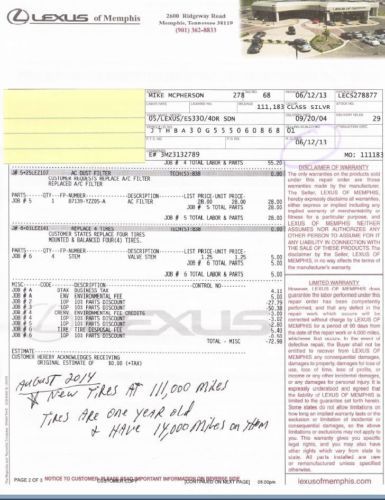 LEXUS of Memphis
2600 Ridgeway Road
Memphis, Tennessee 38119
(901) 362-8833
MIKE MCPHERSON 278 68 06/12/13 LECS278877
111,183 CLASS SILVR
05/LEXUS/ES330/4DR SDN 09/20/04 29
J T H B A 3 0 G 5 5 5 0 6 0 8 6 8 01
06/12/13
E# 3M23132789 MO: 111183
JOB # 4 TOTAL LABOR & PARTS 55.20
AC DUST FILTER TECH(S):838 0.00
CUSTOMER REQUESTS REPLACE A/C FILTER
REPLACED A/C FILTER
PARTS---QTY---FP-NUMBER---DESCRIPTION---LIST PRICE-UNIT PRICE-
JOB # 5 1 87139-YZZ05-A AC FILTER 28.00 28.00 28.00
JOB # 5 TOTAL PARTS 28.00
JOB # 5 TOTAL LABOR & PARTS 28.00
REPLACE 4 TIRES TECH(S):838 0.00
CUSTOMER STATES REPLACE FOUR TIRES
MOUNTED & BALANCED FOUR(4) TIRES.
PARTS---QTY---FP-NUMBER---DESCRIPTION---LIST PRICE-UNIT PRICE-
JOB # 6 4 STEM VALVE STEM 1.25 1.25 5.00
JOB # 6 TOTAL PARTS 5.00
JOB # 6 TOTAL LABOR & PARTS 5.00
MISC---CODE---DESCRIPTION---CONTROL NO---
JOB # A BUSINESS TAX 4.11
JOB # A ENV ENVIRONMENTAL FEE 5.00
JOB # 2 10P 10% PARTS DISCOUNT
JOB # 3 10P 10% PARTS DISCOUNT
JOB # 4 ENVIRONMENTAL FEE CREDITS
JOB # 4 10P 10% PARTS DISCOUNT
JOB # 5 10P 10% PARTS DISCOUNT
JOB # 6 TIRE TIRE DISPOSAL
JOB # 6 10P 10% PARTS DISCOUNT
TOTAL - MISC -72.98
ESTIMATE
CUSTOMER HEREBY ACKNOWLEDGES RECEIVING
ORIGINAL ESTIMATE OF $0.00 (+TAX)
AUGUST 2014
* NEW TIRES AT 111,000 MILES
TIRES ARE ONE YEAR OLD
& HAVE 14,000 MILES ON THEM
DISCLAIMER OF WARRANTY
The only warranties on the products sold
under this repair order are those
warranties made by the manufacturer.
The Seller, LEXUS OF MEMPHIS,
hereby expressly disclaims all warranties,
either express or implied including any
implied warranty of merchantability or
fitness for a particular purpose, and
LEXUS OF MEMPHIS NEITHER
ASSUMES NOR AUTHORIZES ANY
OTHER PERSON TO ASSUME FOR IT
ANY LIABILITY IN CONNECTION WITH
THE SALE OF THESE PRODUCTS. The
disclaimer by the Seller, LEXUS OF
MEMPHIS, in no way affects the terms of
the manufacturer's warranty.
LIMITED WARRANTY
However, LEXUS OF MEMPHIS does
guarantee the labor performed under this
repair order has been competently
performed, and that any defect in the
repair work which occurs will be
corrected without charge by LEXUS OF
MEMPHIS for a period of 90 days from
the date of the repair work or 4,000 miles,
whichever first occurs. In the event of
defective repair, the Buyer shall not be
entitled to recover from LEXUS OF
MEMPHIS any consequential damages,
damages to property, damages for loss of
use, loss of time, loss of profits, or
income or any other incidental damages,
or any damages for personal injury. It is
expressly understood and agreed that
the liability of LEXUS OF MEMPHIS is
limited to the guarantee set forth herein.
Some states do not allow limitations on
how long an implied warranty lasts or the
exclusion or limitation of incidental or
consequential damages, so the above
limitations or exclusions may not apply to
you. This warranty gives you specific
legal rights, and you may also have
other rights which vary from state to
state. All parts installed are new
or remanufactured unless specified
otherwise.
PAGE 2 OF 3 NOTICE TO CUSTOMER: PLEASE READ IMPORTANT INFORMATION ON REVERSE SIDE
CUSTOMER COPY [CONTINUED ON NEXT PAGE] 05:00pm
lexusofmemphis.com